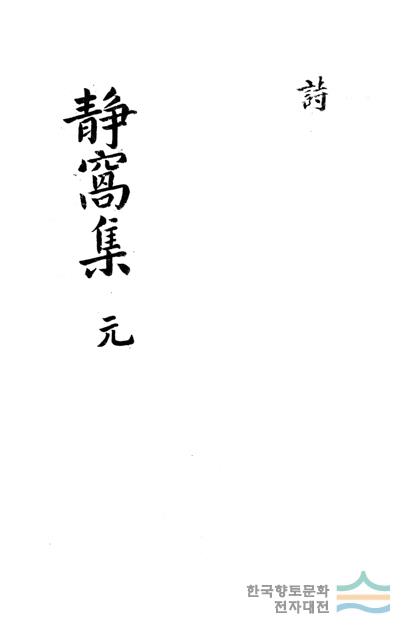 詩
靜窩集 元
한국향토문화
전자대전